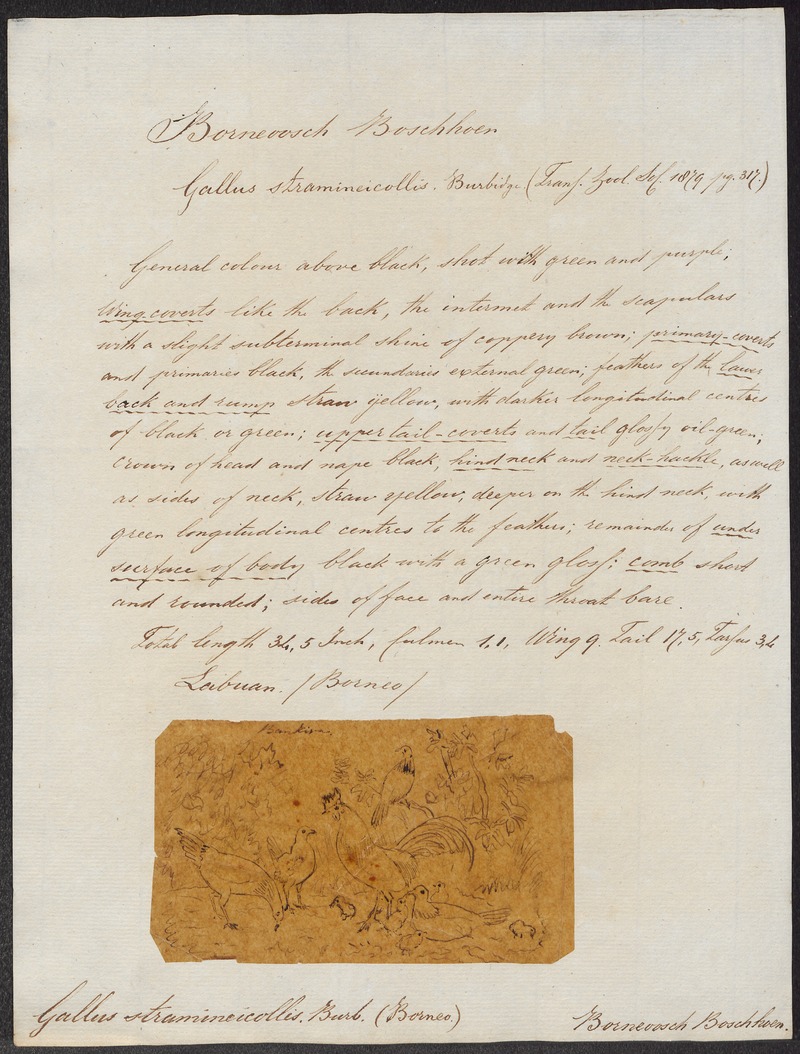 Borneoosch Boschhoen
Gallus stramineicollis. Burbidge (Transs. Zool. Sos. 1879 pg. 317.)
General colour above black, shot with green and purple;
Wing coverts like the back, the intermet and the scapulars
with a slight subterminal shine of coppery brown; primary-coverts
and primaries black, the secundaries external green; feathers of the lower
back and rump straw yellow, with darker longitudinal centres
of black or green; upper tail-coverts and tail glossy oil-green;
crown of head and nape black, hind neck and neck-hackle, as well
as sides of neck, straw yellow, deeper on the hind neck, with
green longitudinal centres to the feathers; remainder of under
surface of body black with a green gloss; comb short
and rounded; sides of face and entire throat bare.
Total length Inch, Culmen 1,1, Wing 9. Tail 17,5, Tarsus
Labuan. /Borneo/
Bankiva.
Gallus stramineicollis. Burb. (Borneo.)
Borneoosch Boschhoen.